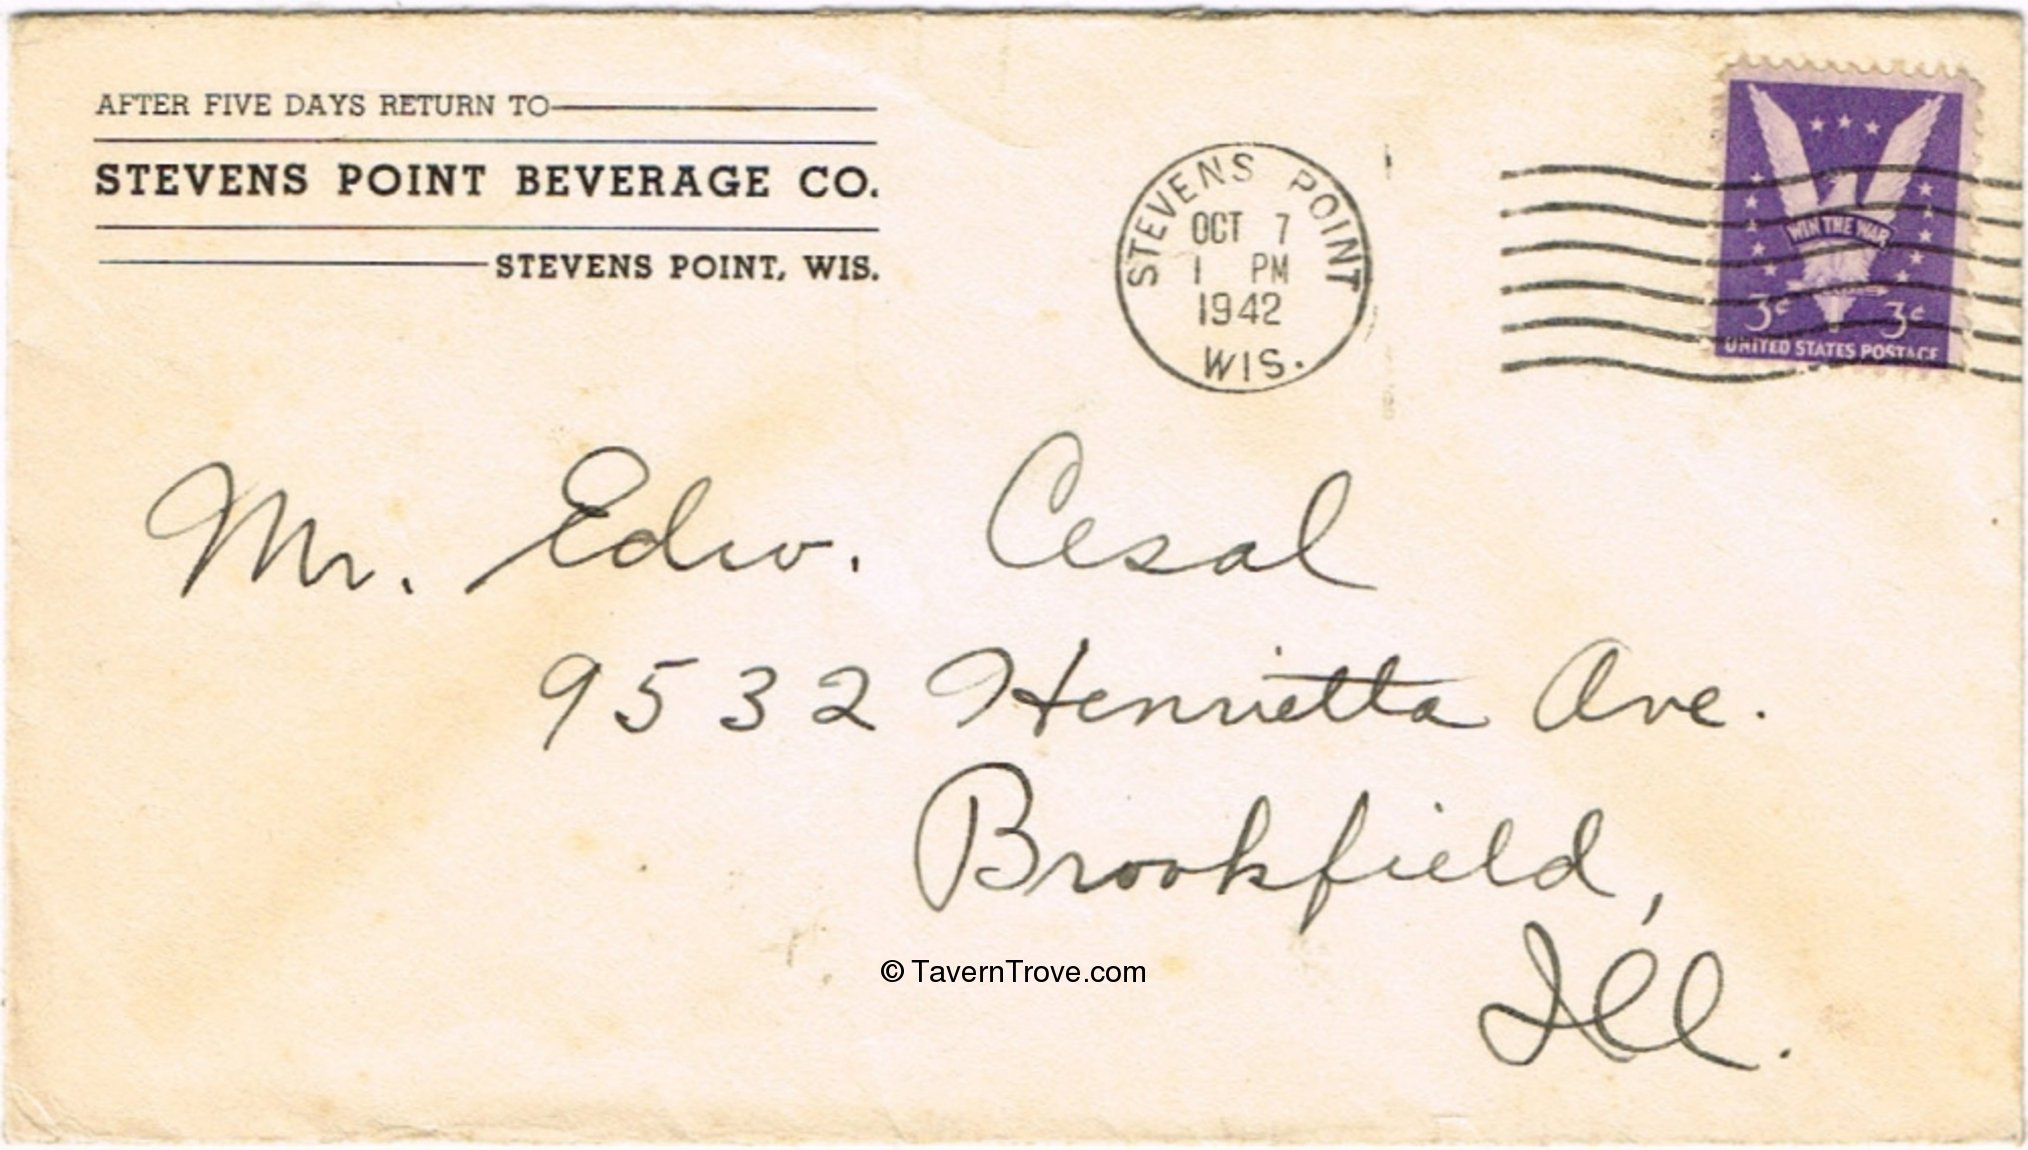 AFTER FIVE DAYS RETURN TO
STEVENS POINT BEVERAGE CO.
STEVENS POINT, WIS.
STEVENS POINT
OCT 7
1 PM
1942
WIS.
WIN THE WAR
3¢ 3¢
UNITED STATES POSTAGE
Mr. Edw. Cesal
9532 Henrietta Ave.
Brookfield,
Ill.
© TavernTrove.com